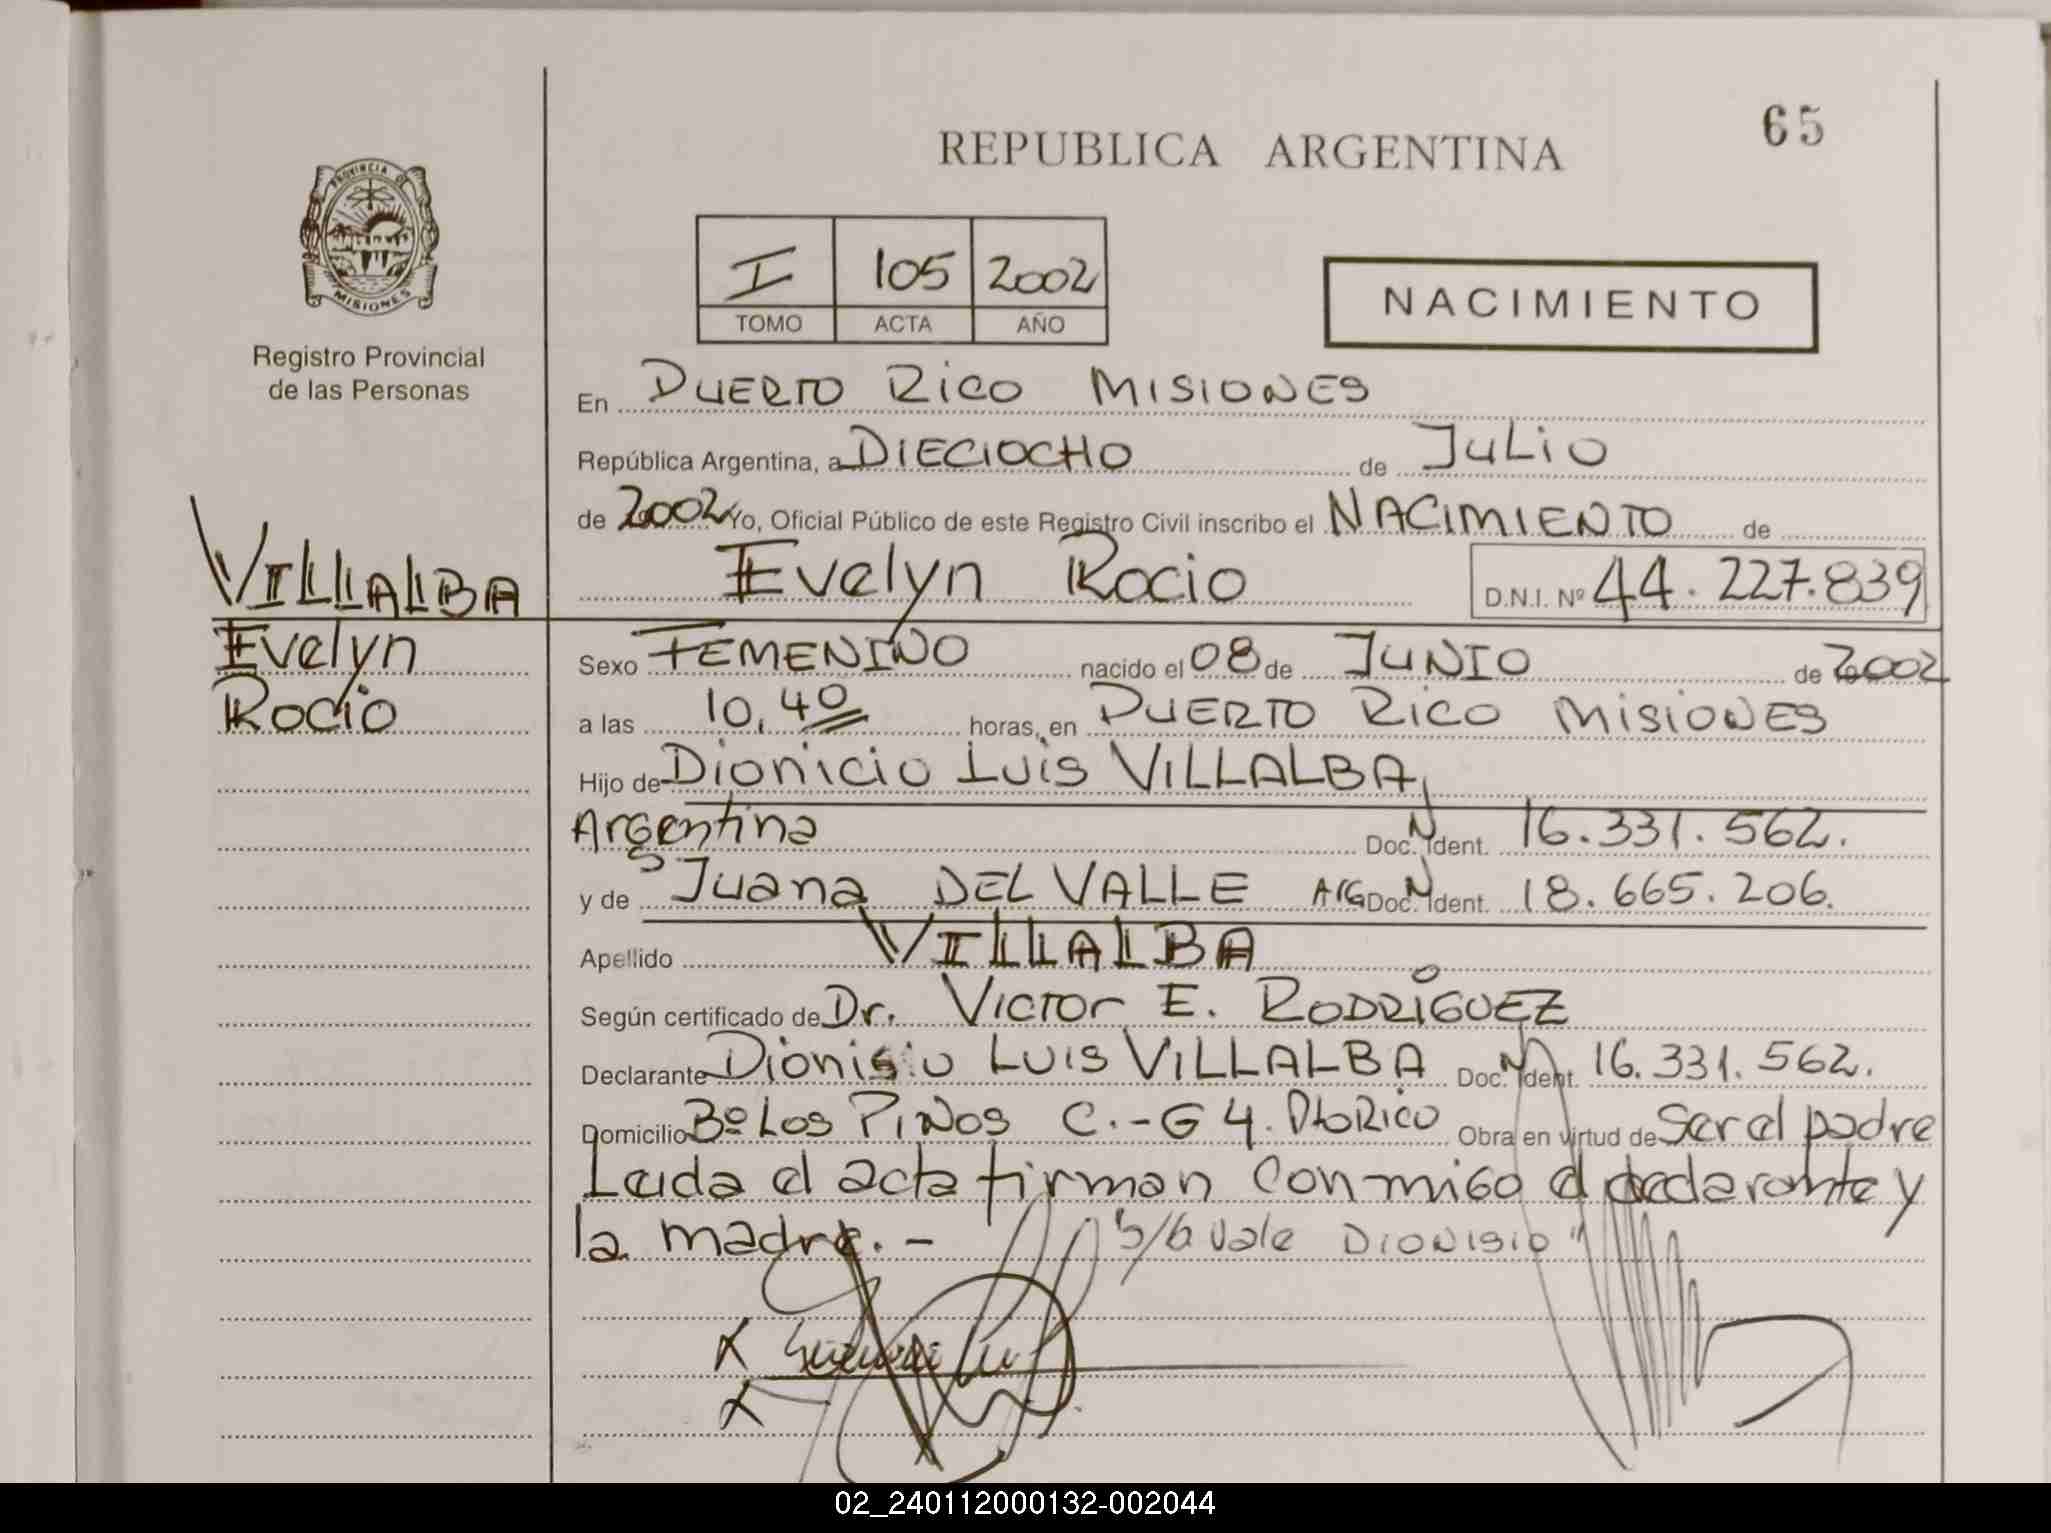 65
REPUBLICA ARGENTINA
PROVINCIA DE
MISIONES
I 105 2002
TOMO ACTA AÑO
NACIMIENTO
Registro Provincial
de las Personas
En PUERTO RICO MISIONES
República Argentina, a DIECIOCHO de JULIO
de 2002 Yo, Oficial Público de este Registro Civil inscribo el NACIMIENTO de
Evelyn Rocio D.N.I. Nº 44.227.839
VILLALBA
Evelyn
Rocio
Sexo FEMENINO nacido el 08 de JUNIO de 2002
a las 10,40 horas, en PUERTO RICO MISIONES
Hijo de Dionicio Luis VILLALBA,
Argentina Doc. N Ident. 16.331.562.
y de Juana DEL VALLE Arg Doc. N Ident. 18.665.206.
Apellido VILLALBA
Según certificado de Dr. Victor E. RODRIGUEZ
Declarante Dionisio Luis VILLALBA Doc. N Ident. 16.331.562.
Domicilio Bº Los Pinos C.-G 4. Pto Rico Obra en virtud de Ser el padre
Leida el acta firman conmigo el declarante y
la madre. - "s/b vale Dionisio"
02_240112000132-002044